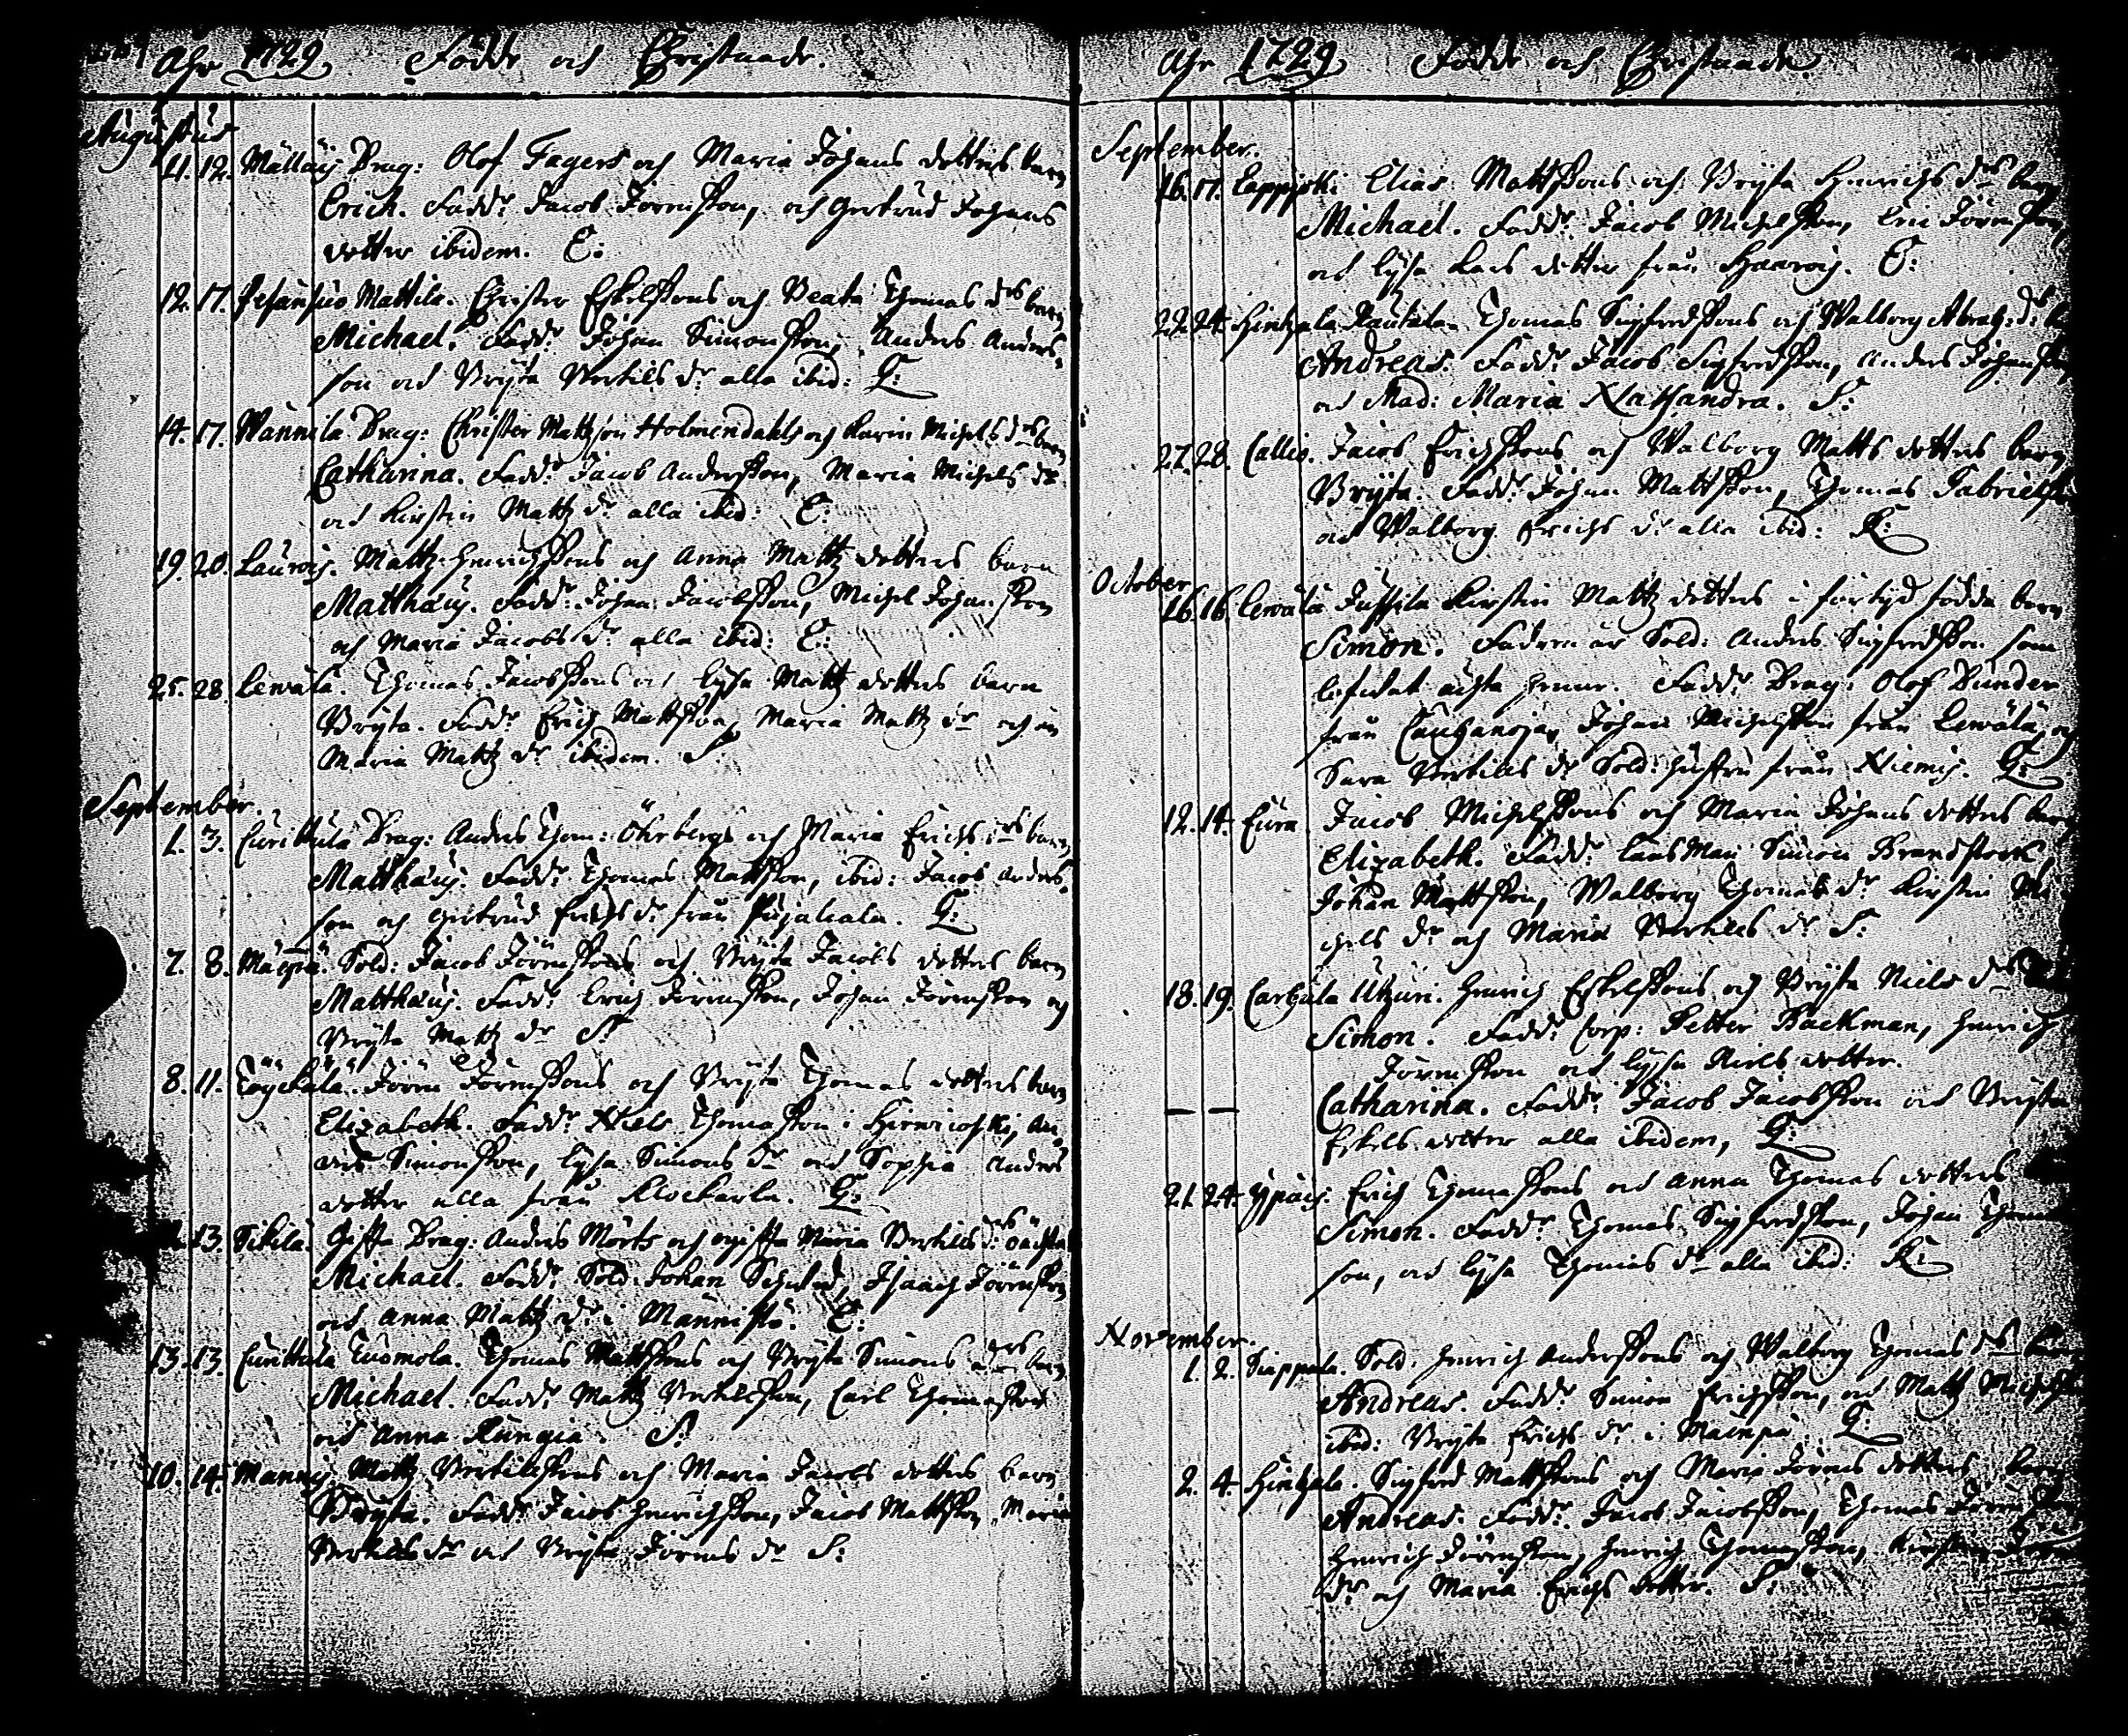 Åhr 1729. Födde och Christnade.
Augustus
11. 12. Mälläis Drag: Olof Fagers och Maria Johans dotters barn
Erich. Fadd:r Jacob Jörensson, och Gertrud Johans
dotter ibidem. E:
12. 17. Mattila. Christer Eskelssons och Beata Thomas d:rs barn
Michael. Fadd:r Johan Simonsson, Anders Anders-
son och Brijta Bertils d:r alla ibid: G:
14. 17. Wännilä Drag: Christer Mattsson Holmendahls och Karin Michels d:rs barn
Catharina. Fadd:r Jacob Andersson, Maria Michels d:r
och Kirstin Mattz d:r alla ibid: E:
19. 20. Lauroij. Mattz Henrichssons och Anna Mattz dotters barn
Matthæus. Fadd:r Johan Jacobsson, Michel Johansson
och Maria Jacobs d:r alla ibid: E:
25. 28. Lewälä. Thomas Jacobssons och Lijsa Mattz dotters barn
Brijta. Fadd:r Erich Mattsson, Maria Mattz d:r och
Maria Mattz d:r ibidem. S:
September.
1. 3. Curittula Drag: Anders Thom: Öhrbergs och Maria Erichs d:rs barn
Matthæus. Fadd:r Thomas Mattsson, ibid: Jacob Anders-
son och Gertrud Erichs d:r från G:
7. 8. Mäenpä. Sold: Jacob Jörenssons och Brijta Jacobs dotters barn
Matthæus. Fadd:r Erich Jörensson, Johan Jörensson och
Brijta Mattz d:r S:
8. 11. Jören Jörenssons och Brijta Thomas dotters barn
Elizabeth. Fadd:r Niels Thomasson i An-
ders Simonsson, Lijsa Simons d:r och Sophia Anders
dotter alla från Klockarla. G:
13. Sikilä. Giffta Drag: Anders Mörts och ogiffta Maria Bertills d:rs oächta
Michael. Fadd:r Sold: Johan Isaach Jörensson
och Anna Mattz d:r i Männistö. E:
13. 13. Curittula Tuomola. Thomas Mattssons och Brijta Simons d:rs barn
Michael. Fadd:r Mattz Bertilsson, Carl Thomasson
och Anna S:
10. 14. Mannij. Mattz Bertilssons och Maria Jacobs dotters barn
Brijta. Fadd:r Jacob Henrichsson, Jacob Mattsson, Maria
Bertils d:r och Brijta Jörens d:r S:
Åhr 1729. Födde och Christnade.
September.
16. 17. Lappjoki Elias Mattssons och Brijta Henrichs d:rs barn
Michael. Fadd:r Jacob Michelsson, Eric Jörensson,
och Lijsa Lars dotter från Haaroij. E:
22. 24. Hinthala Rautala. Thomas Sigfredssons och Walborg Abrah: d:rs
Andreas. Fadd:r Jacob Sigfredsson, Anders Johansson
och Mad: Maria Xathandra. S:
27. 28. Callio. Jacob Erichssons och Walborg Matts dotters barn
Brijta. Fadd:r Johan Mattsson, Thomas Gabrielsson
och Walborg Erichs d:r alla ibid: K:
October
16. 16. Lewälä Jussila Kirstin Mattz dotters i förtijd födda barn
Simon. Fadren är Sold: Anders Sigfredsson som
lofwat ächta henne. Fadd:r Drag: Olof Dunder
från Cauhanoja, Johan Michelsson från Lewälä, och
Sara Bertills d:r Sold: hustru från Niemis. G:
12. 14. Eura Jacob Michelssons och Maria Johans dotters barn
Elizabeth. Fadd:r Länsman Simon Brandstock,
Johan Mattsson, Walborg Thomas d:r Kirstin Mi-
chels d:r och Maria Bertills d:r S:
18. 19. Carhula Uhuri. Henrich Eskelssons och Brijta Niels d:rs
Simon. Fadd:r Corp: Petter Backman, Henrich
Jörensson och Lijsa Niels dotter.
— — Catharina. Fadd:r Jacob Jacobsson och Brijta
Eskels dotter alla ibidem, G:
21. 24. Ypäis: Erich Thomassons och Anna Thomas dotters
Simon. Fadd:r Thomas Sigfredsson, Johan Thomas-
son, och Lijsa Thomas d:r alla ibid: K:
November.
1. 2. Siappala Sold: Henrich Anderssons och Walborg Thomas d:rs barn
Andreas. Fadd:r Simon Erichsson, och Mattz Michelsson
ibid: Brijta Erichs d:r i Mäenpä. G:
2. 4. Hinthala. Sigfred Mattssons och Maria Jörens dotters barn
Andreas. Fadd:r Jacob Jacobsson, Thomas Jörensson
Henrich Jörensson, Henrich Thomasson, Kirstin
d:r och Maria Erichs dotter. S: